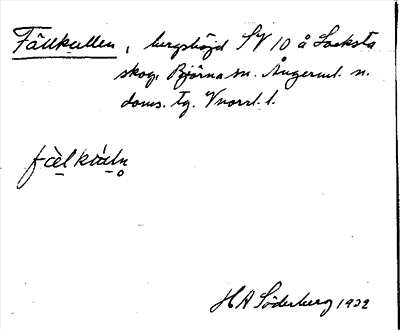 Fällkullen, bergshöjd SV 10 å Locksta
skog, Björna sn. Ångerml. n.
doms. tg. Vnorrl. l.
fàlkúln̥
H A Söderberg 1932